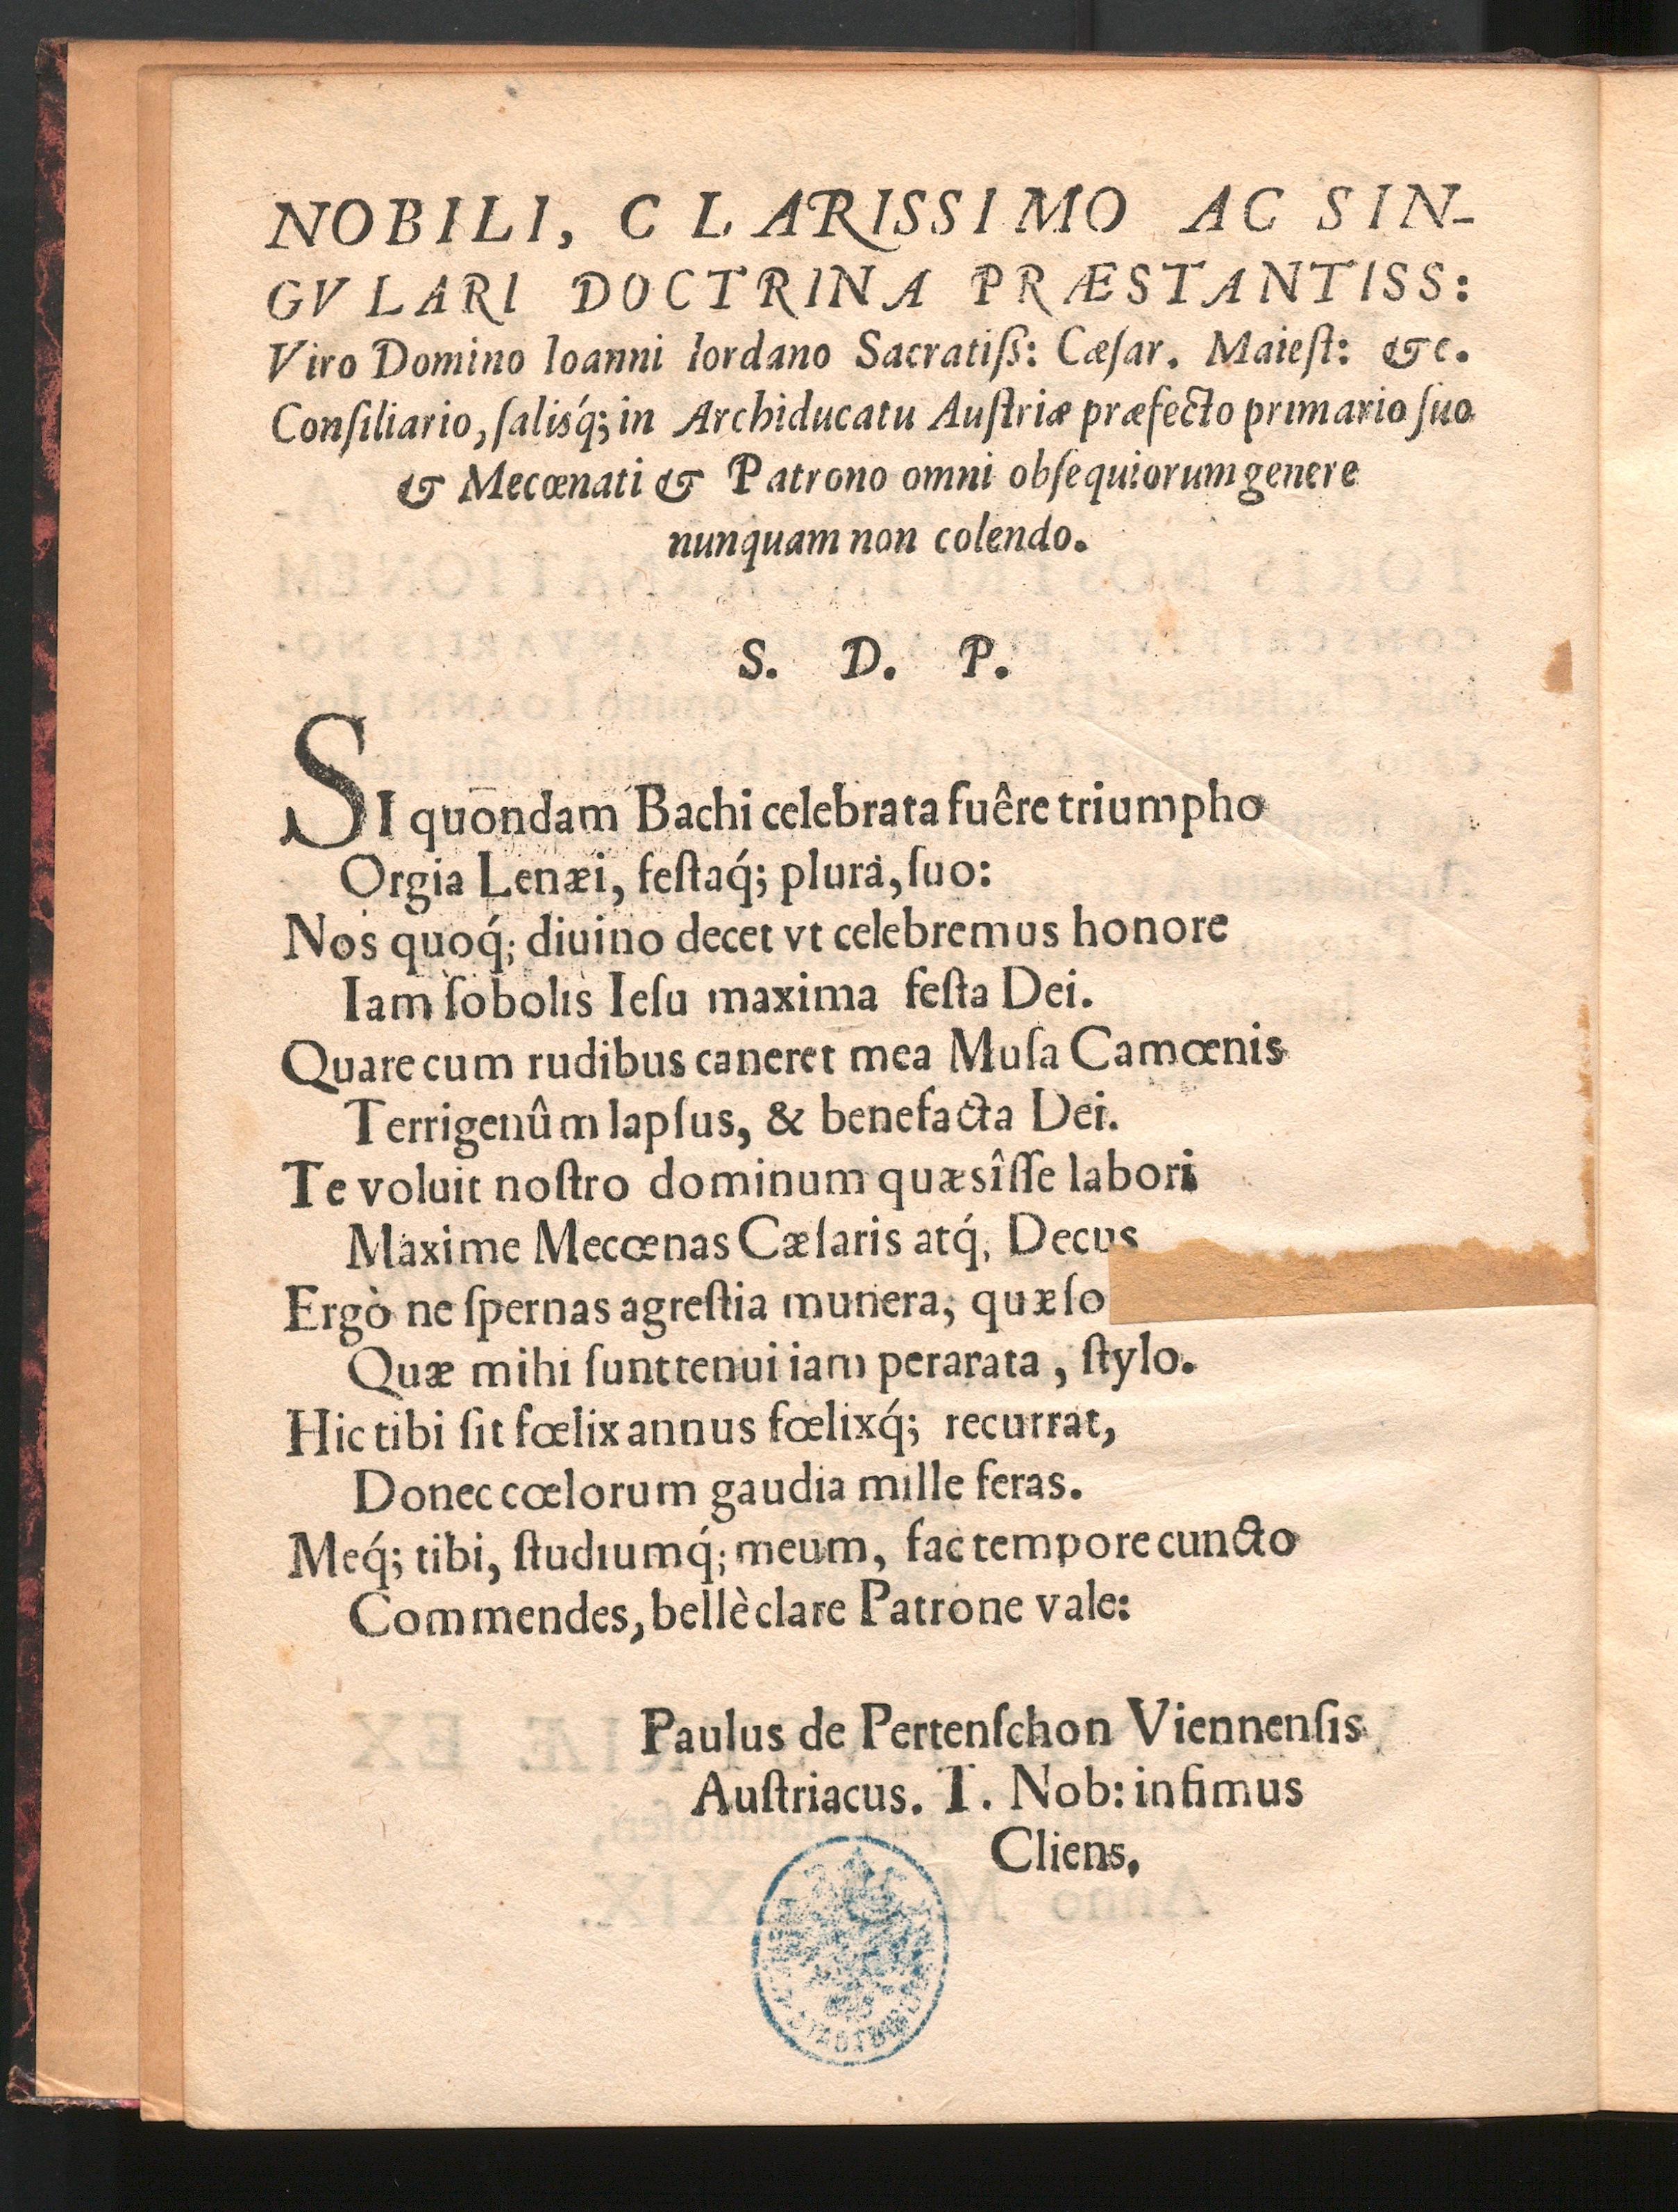 NOBILI, CLARISSIMO AC SIN-
GVLARI DOCTRINA PRÆSTANTISS:
Viro Domino Ioanni Iordano Sacratiſſ: Cæſar. Maieſt: &c.
Conſiliario, ſalisq́; in Archiducatu Auſtriæ præfecto primario ſuo
& Mecœnati & Patrono omni obſequiorum genere
nunquam non colendo.
S. D. P.
SI quondam Bachi celebrata fuêre triumpho
Orgia Lenæi, feſtaq́; plura, ſuo:
Nos quoq́; diuino decet vt celebremus honore
Iam ſobolis Ieſu maxima feſta Dei.
Quare cum rudibus caneret mea Muſa Camœnis
Terrigenûm lapſus, & benefacta Dei.
Te voluit noſtro dominum quæsîſſe labori
Maxime Mecœnas Cæſaris atq́, Decus
Ergò ne ſpernas agreſtia munera, quæſo
Quæ mihi ſunt tenui iam perarata, ſtylo.
Hic tibi ſit fœlix annus fœlixq́; recurrat,
Donec cœlorum gaudia mille feras.
Meq́; tibi, ſtudiumq́; meum, fac tempore cuncto
Commendes, bellè clare Patrone vale:
Paulus de Pertenſchon Viennenſis
Auſtriacus. T. Nob: infimus
Cliens,